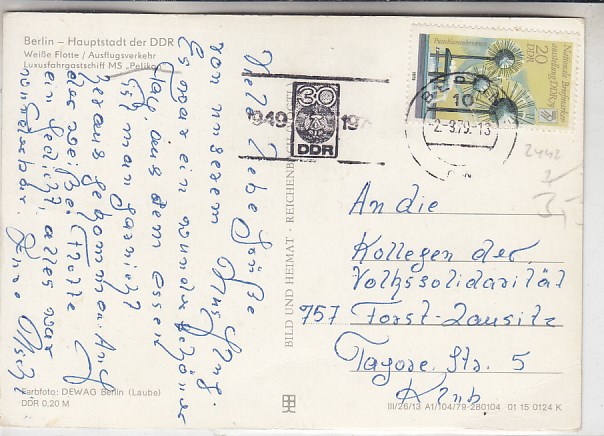 Berlin – Hauptstadt der DDR
Weiße Flotte / Ausflugsverkehr
Luxusfahrgastschiff MS „Pelikan
Viele liebe Grüße
von unserem Ausflug.
Es war ein wunderschöner
Tag, aus dem essen
ist man garnicht
heraus gekommen. Auf
der weißen Flotte
ein Gedicht, alles war
wunderbar.
Farbfoto: DEWAG Berlin (Laube)
DDR 0,20 M
BILD UND HEIMAT · REICHENBACH
1949 30 197
DDR
BERLIN
10
-2.-8.79.-13
20
DDR
Nationale Briefmarken-
ausstellung DDR 79
2442
An die
Kollegen der
Volkssolidarität
757 Forst-Lausitz
Tagore. Str. 5
Klub
III/26/13 A1/104/79-280104 01 15 0124 K